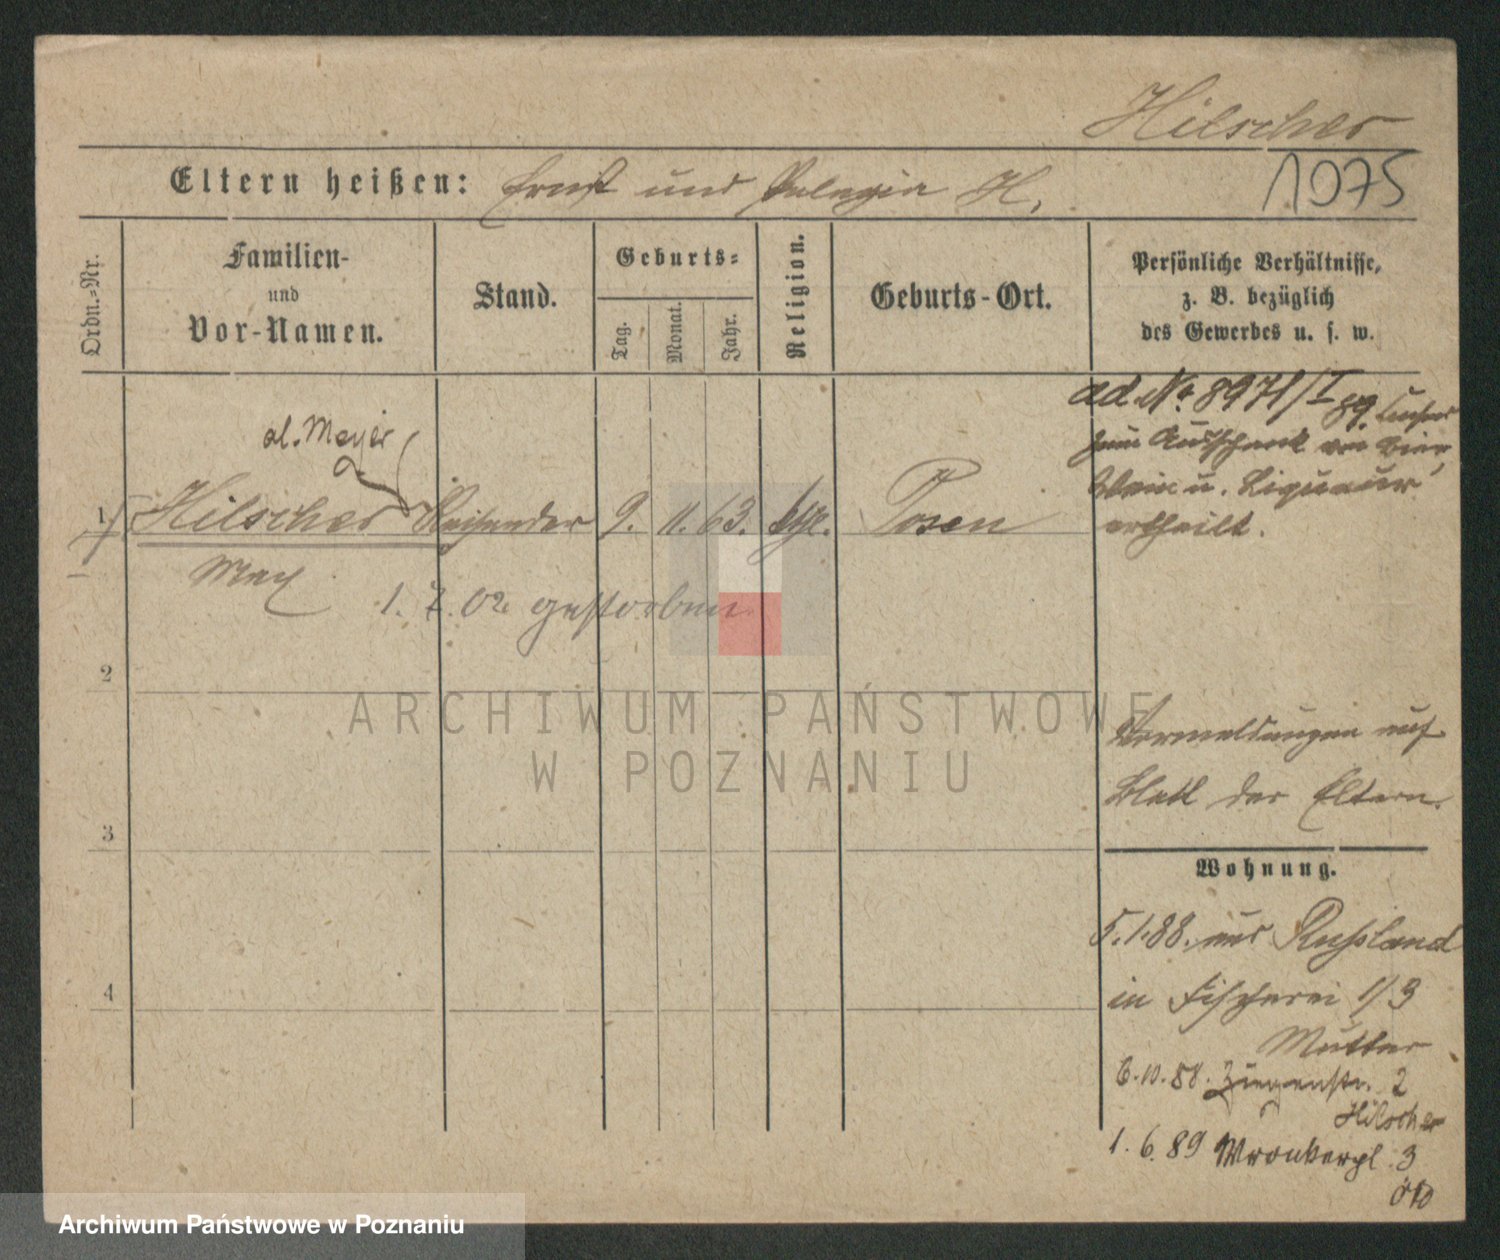 Hilscher
1075
Eltern heißen: Ernst und Pelagia H.
Ordn.-Nr.
Familien-
und
Vor-Namen.
Stand.
Geburts-
Tag.
Monat.
Jahr.
Religion.
Geburts-Ort.
Persönliche Verhältnisse,
z. B. bezüglich
des Gewerbes u. s. w.
al. Mayer
1 Hilscher Reisender 9. 11. 63. kth. Posen
Max
1. 7. 02 gestorben
ad. Nr. 8971/I 89.
zum Ausschank von Bier,
Wein u. Liqueur
ertheilt.
2
3
4
Vermeldungen auf
Blatt der Eltern.
Wohnung.
5.1.88. aus Russland
in Fischerei 1/3
Mutter
6.10.88. Ziegenstr. 2
Hilscher
1. 6. 89 Wronkerpl. 3
ARCHIWUM PAŃSTWOWE
W POZNANIU
Archiwum Państwowe w Poznaniu